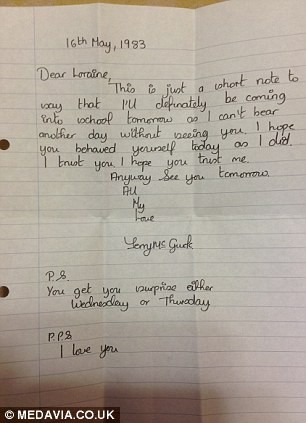 16th May, 1983
Dear Loraine,
This is just a short note to
say that I'll definately be coming
into school tomorrow as I can't bear
another day without seeing you. I hope
you behaved yourself today as I did.
I trust you, I hope you trust me.
Anyway See you tomorrow.
All
My
Love
Terry Mc Gurk
P.S.
You get you surprise either
Wednesday or Thursday
P.P.S
I love you
© MEDAVIA.CO.UK